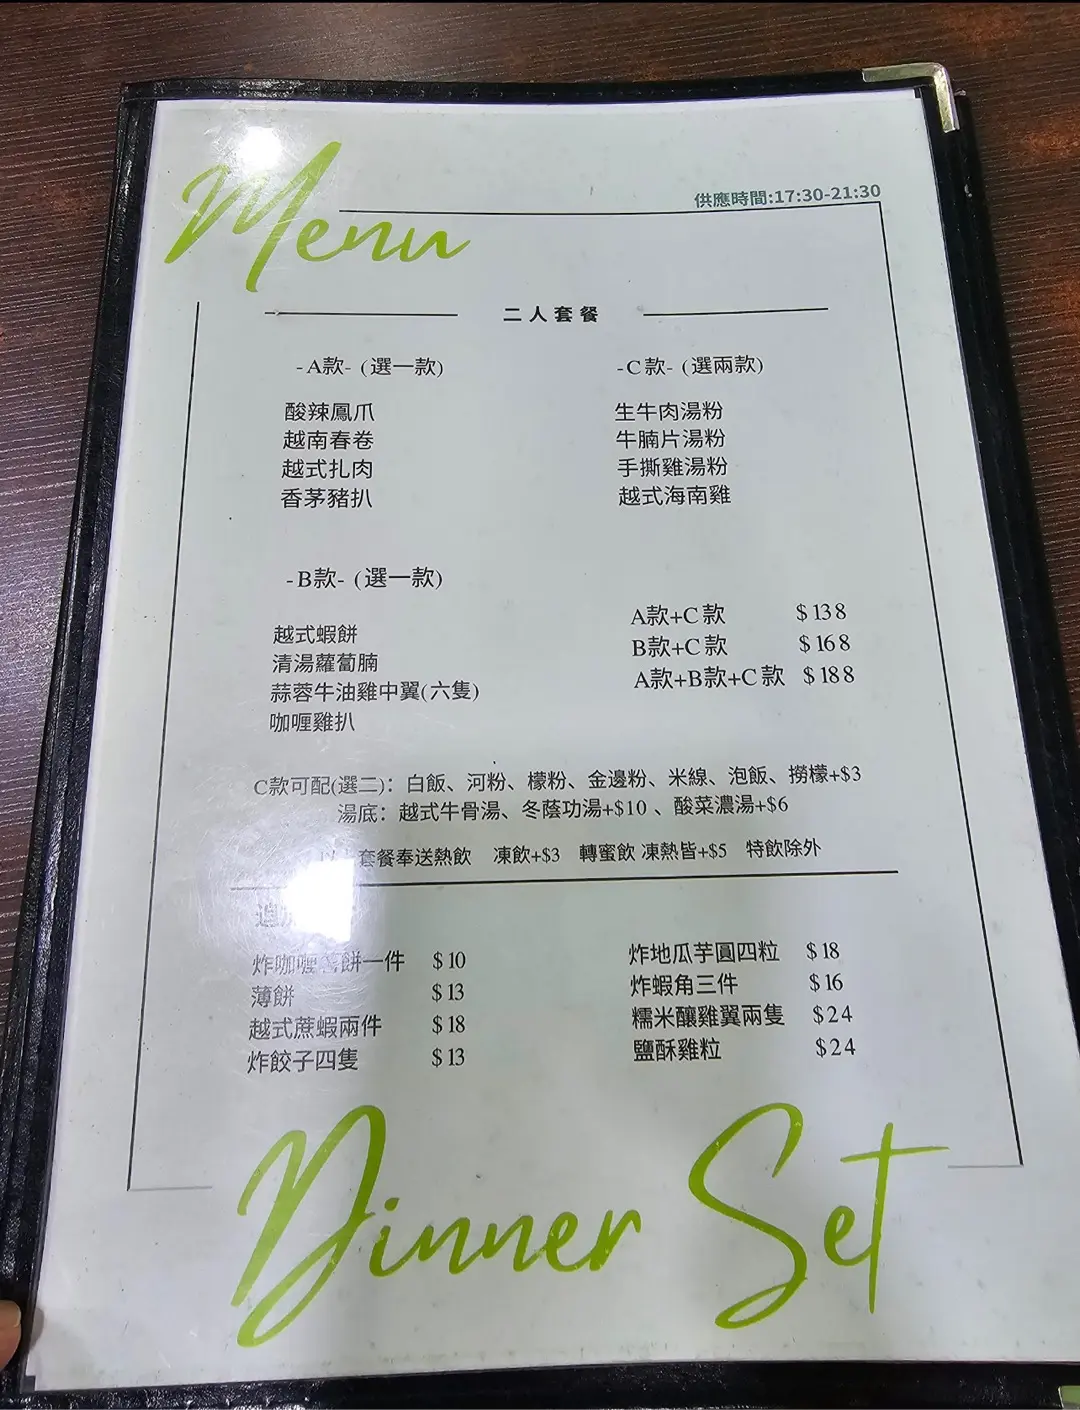 Menu
供應時間:17:30-21:30
二人套餐
-A款- (選一款)
酸辣鳳爪
越南春卷
越式扎肉
香茅豬扒
-C款- (選兩款)
生牛肉湯粉
牛腩片湯粉
手撕雞湯粉
越式海南雞
-B款- (選一款)
越式蝦餅
清湯蘿蔔腩
蒜蓉牛油雞中翼(六隻)
咖喱雞扒
A款+C款 $138
B款+C款 $168
A款+B款+C款 $188
C款可配(選二)：白飯、河粉、檬粉、金邊粉、米線、泡飯、撈檬+$3
湯底：越式牛骨湯、冬蔭功湯+$10、酸菜濃湯+$6
套餐奉送熱飲 凍飲+$3 轉蜜飲 凍熱皆+$5 特飲除外
炸咖喱 餅一件 $10
薄餅 $13
越式蔗蝦兩件 $18
炸餃子四隻 $13
炸地瓜芋圓四粒 $18
炸蝦角三件 $16
糯米釀雞翼兩隻 $24
鹽酥雞粒 $24
Dinner Set